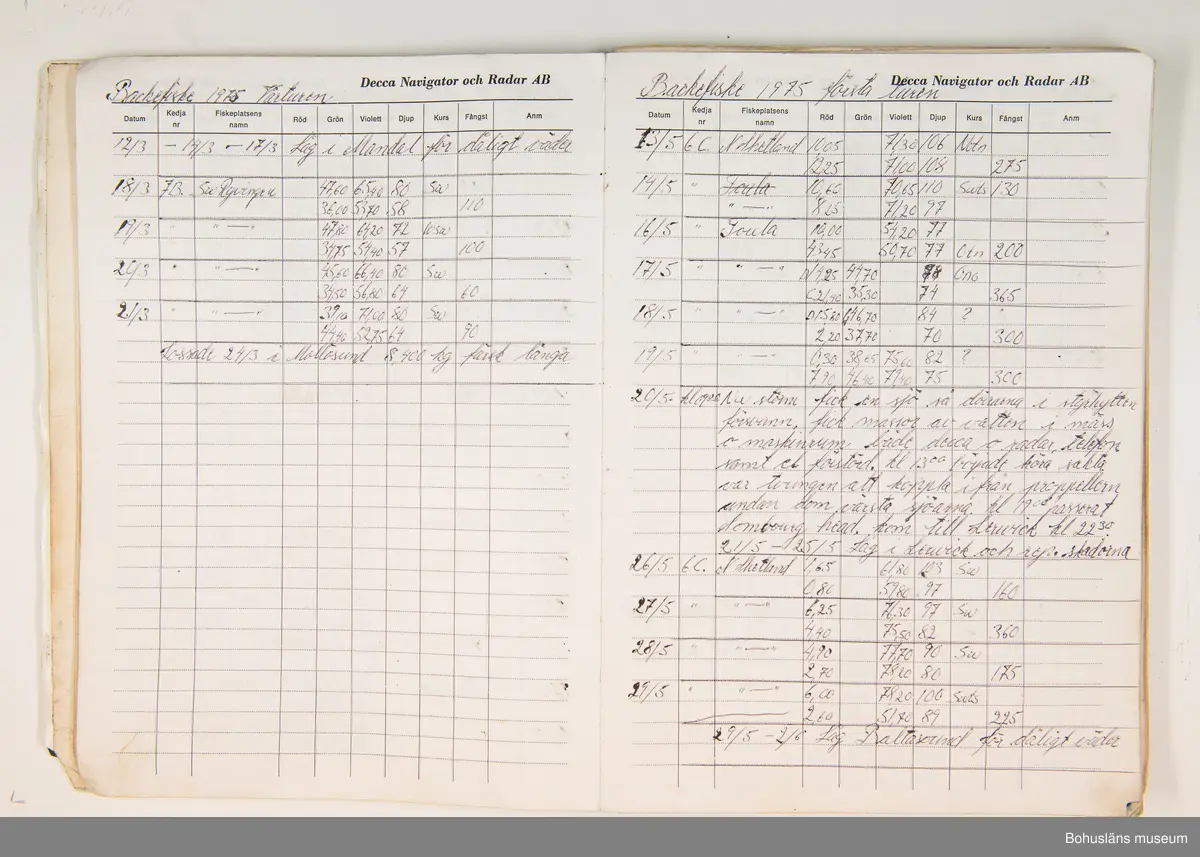 Decca Navigator och Radar AB
Backefiske 1975 Vårturen
Datum Kedja nr Fiskeplatsens namn Röd Grön Violett Djup Kurs Fångst Anm
12/3 – 14/3 – 17/3 Låg i Mandal för dåligt väder
18/3 7B. Sw Ryvingen 47,60 65,40 80 Sw
36,00 53,70 58 110
19/3 " " — " 47,80 64,20 72
34,75 54,40 57 100
20/3 " " — " 45,60 66,40 80 Sw
34,50 56,80 64 60
21/3 " — " 39,10 71,00 80 Sw
44,40 52,75 64 90
Lossade 24/3 i Mollösund 8,400 kg färsk långa
Decca Navigator och Radar AB
Backefiske 1975 första turen
Datum Kedja nr Fiskeplatsens namn Röd Grön Violett Djup Kurs Fångst Anm
13/5 6C. N Shetland 10,05 71,30 106 Notn
12,25 71,00 108 275
14/5 " Foula 10,60 70,65 110 130
" — " 8,05 71,20 97
16/5 " Foula 10,00 54,20 77
43,45 50,70 77 Otn 200
17/5 " " — " 44,70 78 Ono
C21,40 35,30 74 365
18/5 " " — " 46,70 84 ? "
2,20 37,70 70 300
19/5 " — " 0,30 38,05 75,60 82 ?
7,90 46,40 79,40 75 300
20/5. storm fick en sjö så dörrarna i styrhytten
försvann, fick massor av vatten i mäss
o maskinrum både decca o radar, telefon
samt el förstörd. kl 13⁰⁰ började köra sakta
var tvungen att koppla ifrån propellern
undan dom värsta sjöarna kl 19⁰⁰ passerat
head. kom till Lerwick kl 22³⁰.
21/5 – 25/5 Låg i Lerwick och rep. skadorna
26/5 6C. N Shetland 1,65 61,80 103 Sw
0,80 59,80 97 160
27/5 " " — " 6,25 71,30 97 Sw
4,40 75,50 82 360
28/5 " " — " 4,90 77,70 90 Sw
2,70 78,20 80 175
29/5 " " — " 6,00 78,20 100
2,60 51,70 89 225
29/5 – 2/6 Låg Baltasound för dåligt väder
Bohusläns museum